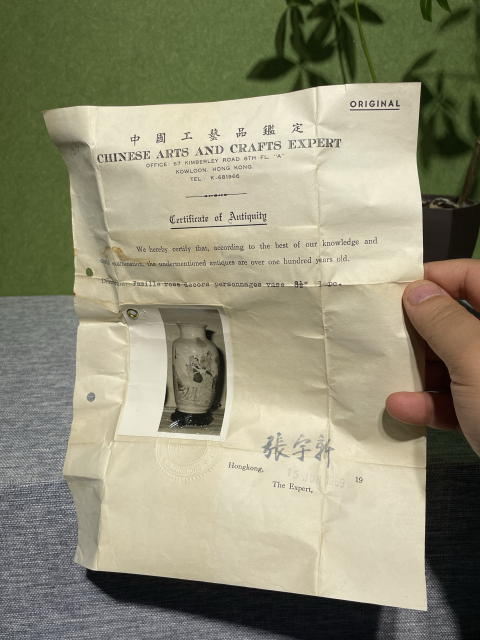 ORIGINAL
中國工藝品鑑定
CHINESE ARTS AND CRAFTS EXPERT
OFFICE: 57 KIMBERLEY ROAD 6TH FL. "A"
KOWLOON, HONG KONG.
TEL: K-681966
Certificate of Antiquity
We hereby certify that, according to the best of our knowledge and
and examination, the undermentioned antiques are over one hundred years old.
Famille rose decors personnages vase 8½" 1 pc.
張宇新
Hongkong, 19
The Expert,